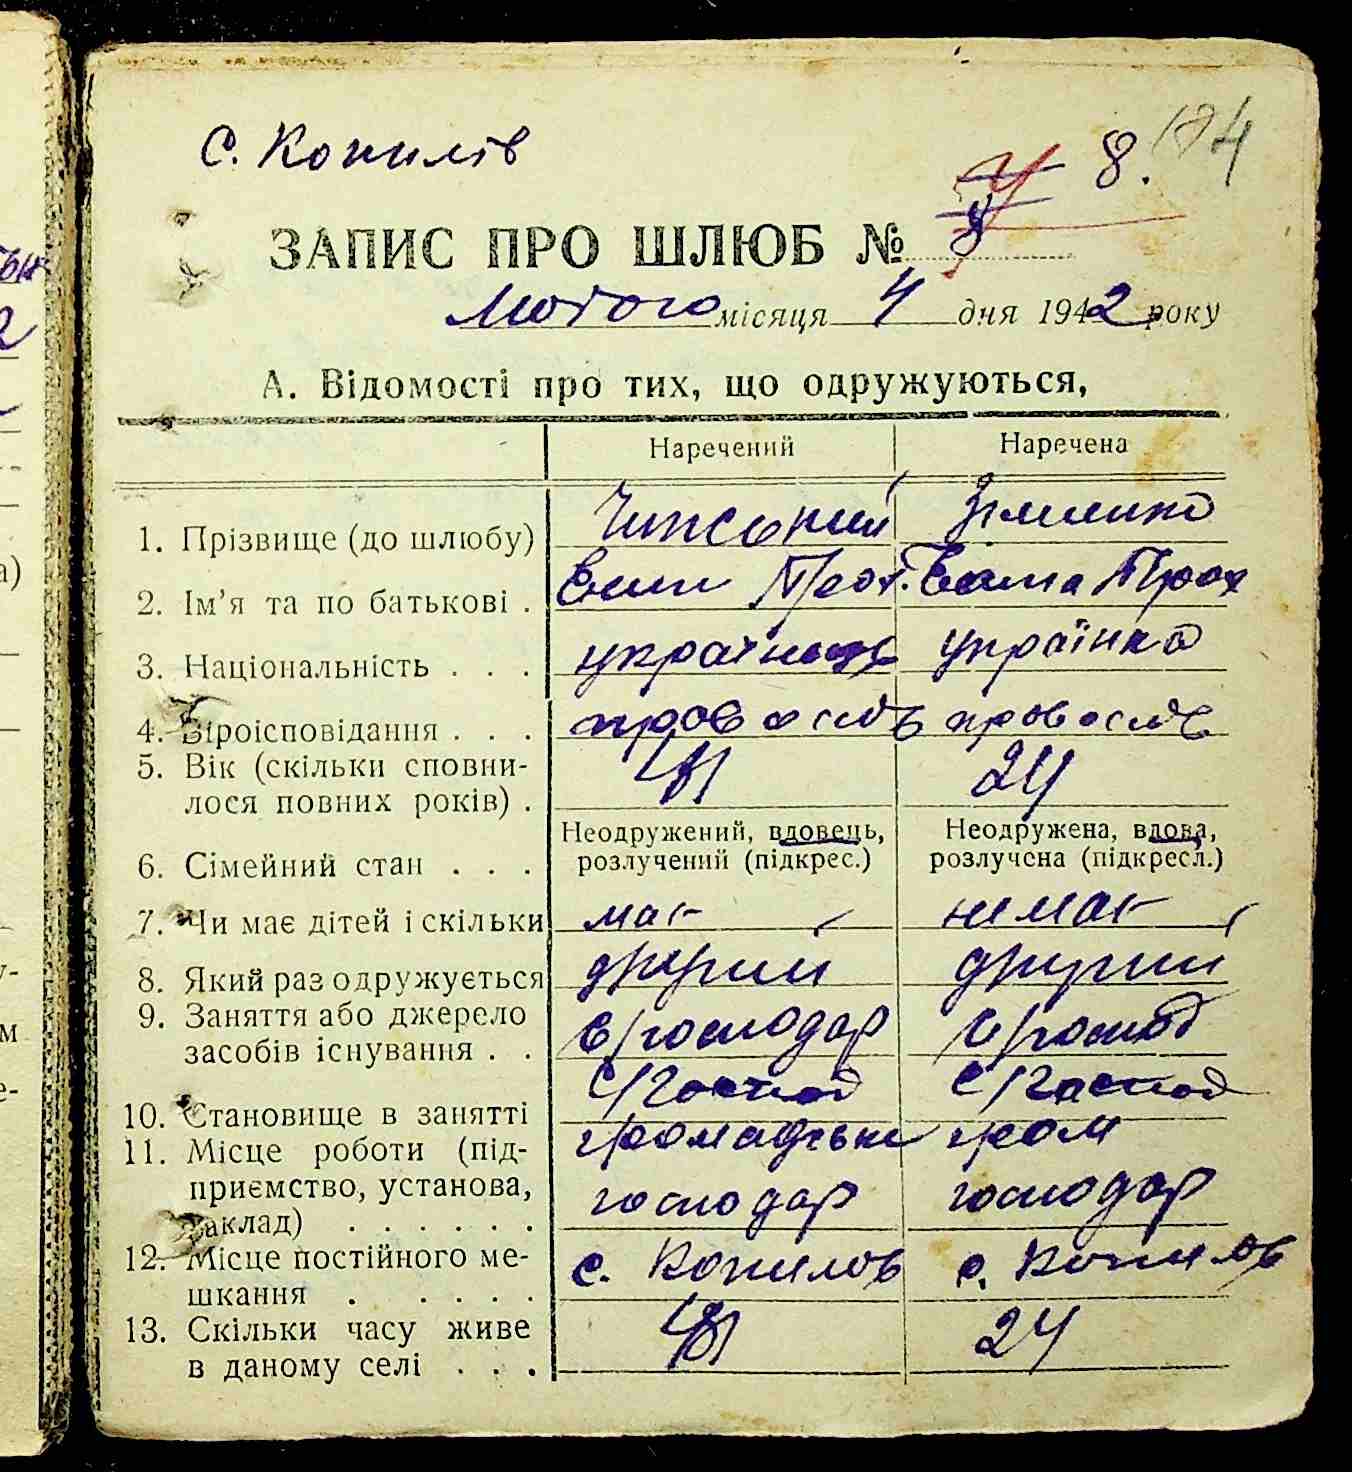 с. Копилів
8.
174
ЗАПИС ПРО ШЛЮБ № 8
Лютого місяця 4 дня 1942 року
А. Відомості про тих, що одружуються,
Наречений Наречена
1. Прізвище (до шлюбу)
2. Ім’я та по батькові .
3. Національність . . . українець українка
4. Віроісповідання . . . православ православ
5. Вік (скільки сповни-
лося повних років) . 24
6. Сімейний стан . . . Неодружений, вдовець, розлучений (підкрес.) Неодружена, вдова, розлучена (підкресл.)
7. Чи має дітей і скільки має немає
8. Який раз одружується другий другий
9. Заняття або джерело
засобів існування . . с/господар с/господ
10. Становище в занятті с/господ с/господ
11. Місце роботи (під-
приємство, установа,
заклад) . . . . . . громадське господар гром господар
12. Місце постійного ме-
шкання . . . . . с. Копилов с. Копилов
13. Скільки часу живе
в даному селі . . . 24